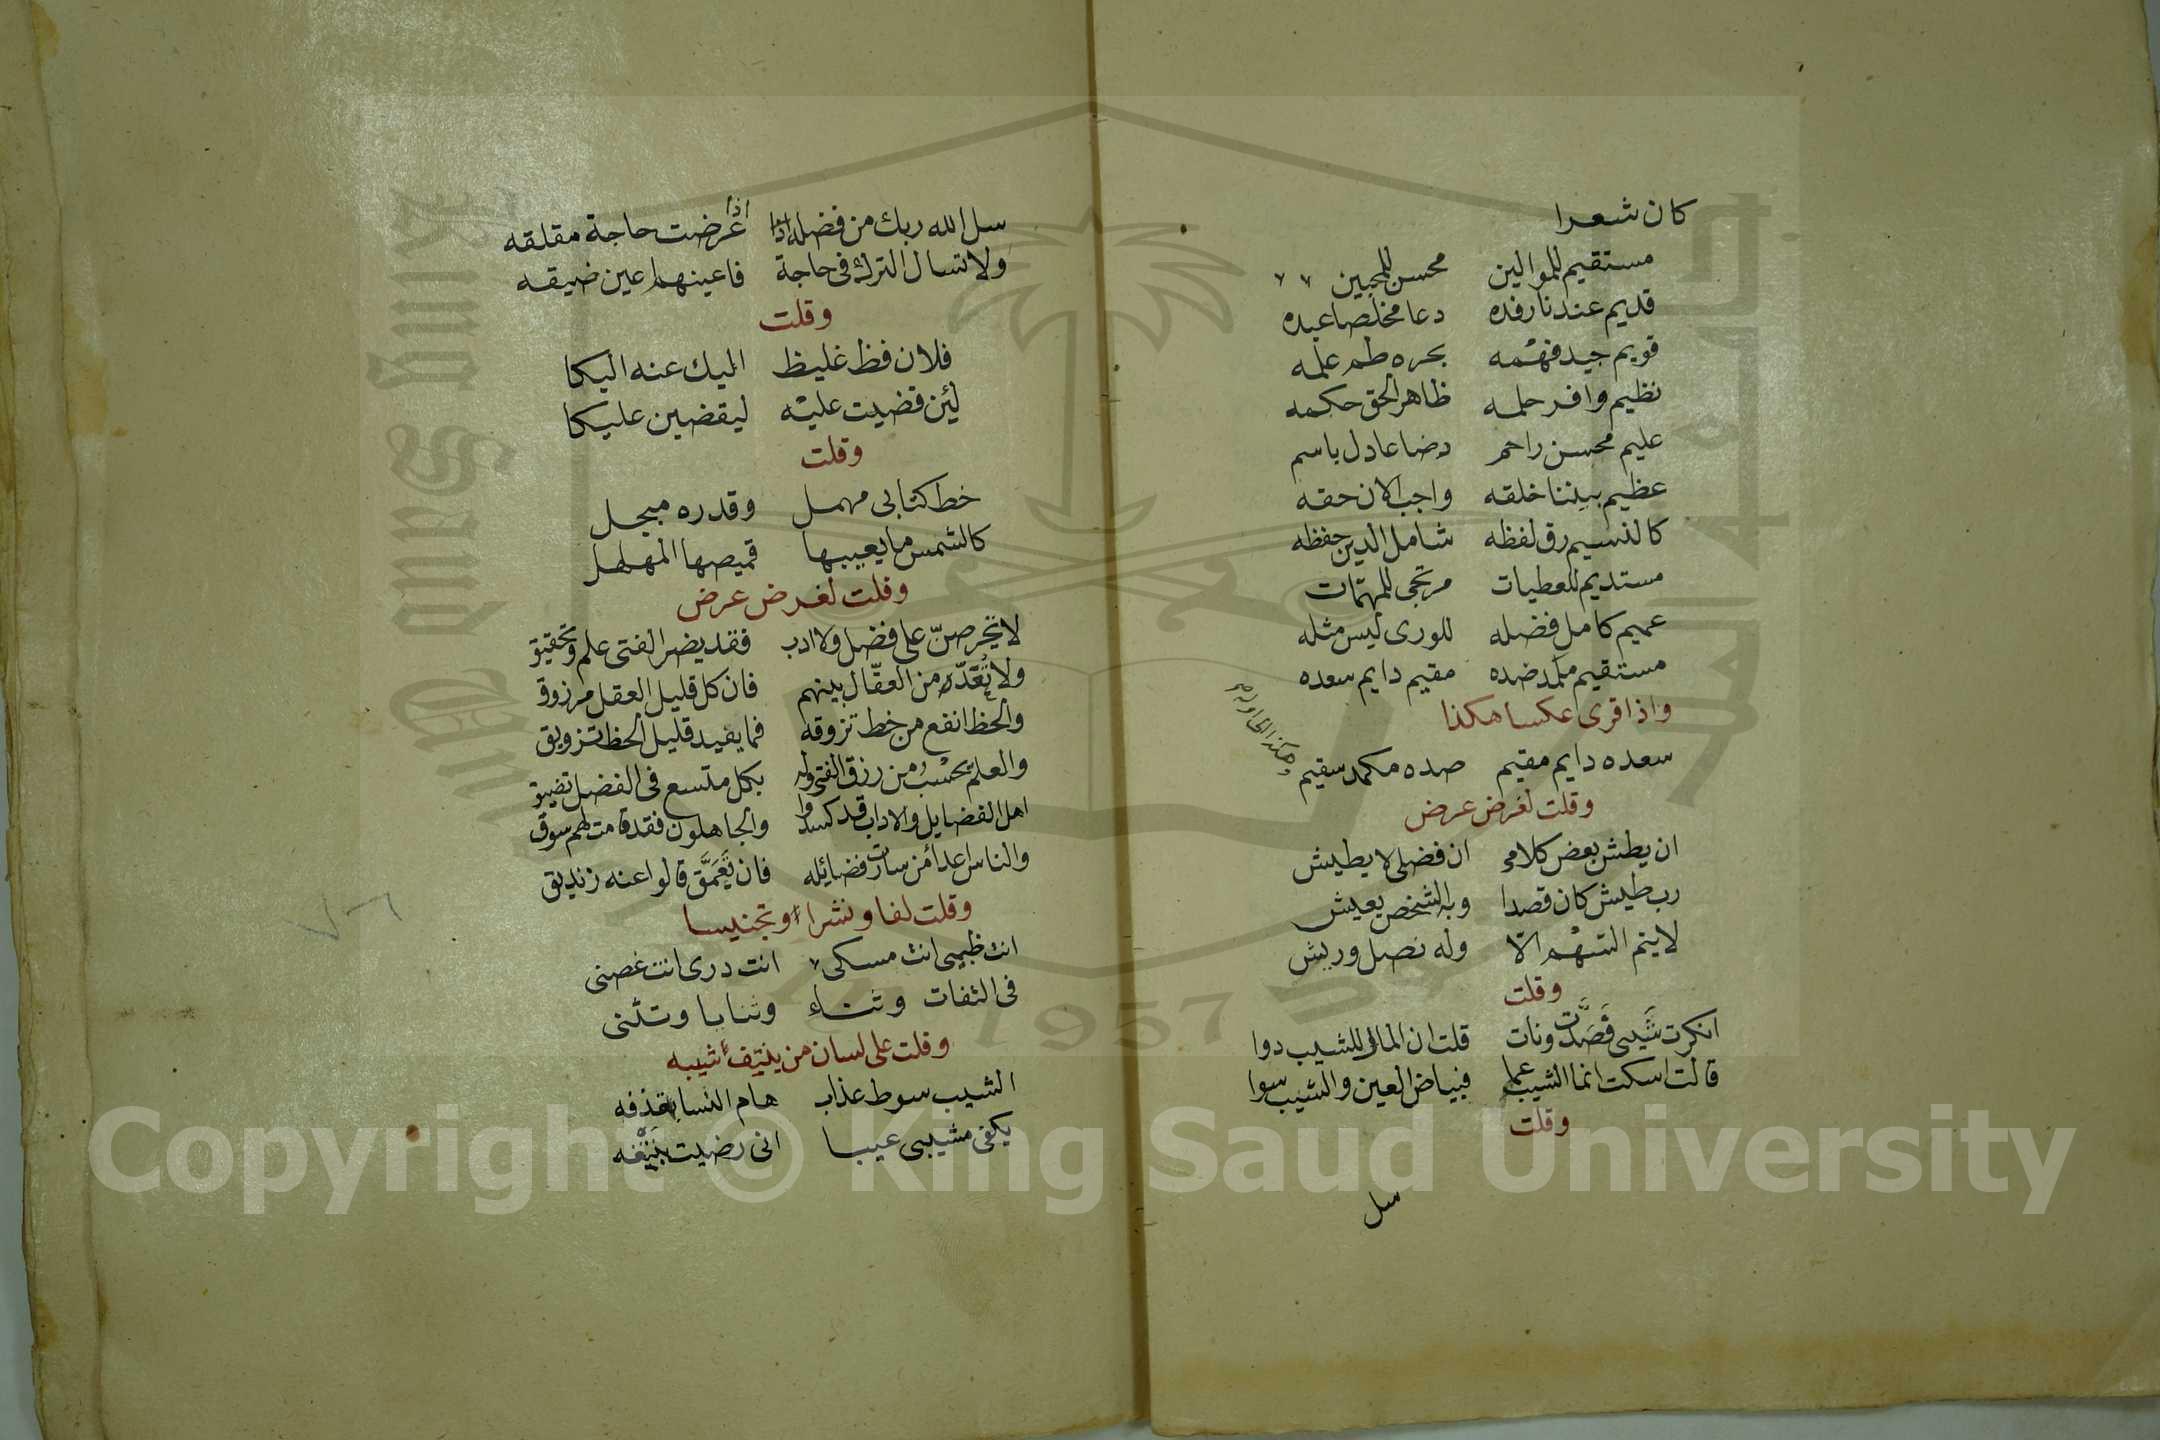 كان شعرا
مستقيم للموالين محسن للمحبين
قديم عندنا رفده دعا مخلصا عبده
قويم جيد فهمه بحره طم علمه
نظيم وافر حلمه ظاهر الحق حكمه
عليم محسن راحم رضا عادل باسم
عظيم بيننا خلقه واجب الان حقه
كالنسيم رق لفظه شامل الدين حفظه
مستديم للعطيات مرتجى للمهمات
عميم كامل فضله للورى ليس مثله
مستقيم مكمد ضده مقيم دايم سعده
واذا قرى عكسا هكذا
سعده دايم مقيم ضده مكمد سقيم
وقلت لغرض عرض
ان يطش بعض كلامى ان فضلى لا يطيش
رب طيش كان قصدا وبه الشخص يعيش
لا يتم السهم الا وله نصل وريش
وقلت
انكرت شيبى فصدت ونات قلت ان المال للشيب دوا
قالت اسكت انما الشيب عمل فبياض العين والشيب سوا
وقلت
سل
سل الله ربك من فضله اذا عرضت حاجة مقلقه
ولا تسال الترك فى حاجة فاعينهم اعين ضيقه
وقلت
فلان فظ غليظ اليك عنه اليكا
لئن قضيت عليه ليقضين عليكا
وقلت
خط كتابى مهمل وقدره مبجل
كالشمس ما يعيبها قميصها المهلهل
وقلت لغرض عرض
لا تحرصن على فضل ولا ادب فقد يضر الفتى علم وتحقيق
ولا تعد من العقال بينهم فان كل قليل العقل مرزوق
والحظ انفع من خط تزوقه فما يفيد قليل الحظ تزويق
والعلم يحسب من رزق الفتى وله بكل متسع فى الفضل تضييق
اهل الفضايل والاداب قد كسدوا والجاهلون فقد قامت لهم سوق
والناس اعدا من سارت فضائله فان تعمق قالوا عنه زنديق
وقلت لفا ونشرا وتجنيسا
انت ظبيى انت مسكى انت درى انت غصنى
فى التفات وثناء وثنايا وتثنى
وقلت على لسان من ينتف شيبه
الشيب سوط عذاب هام النسا بقذفه
يكفى مشيبى عيبا انى رضيت بنتفه
Copyright © King Saud University
King Saud University
1957